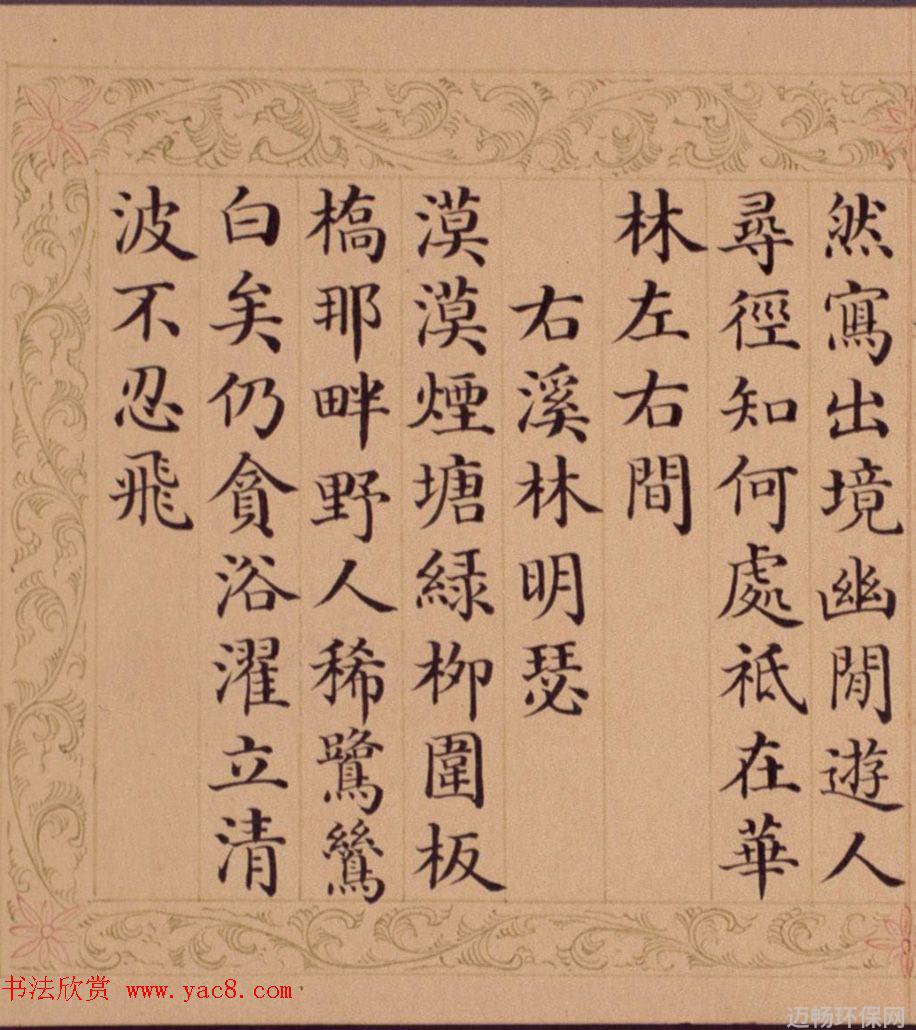 然寫出境幽閒遊人
尋徑知何處祇在華
林左右間
右溪林明瑟
漠漠煙塘綠柳圍板
橋那畔野人稀鷺鷥
白矣仍貪浴濯立清
波不忍飛
书法欣赏 www.yac8.com
迈畅环保网